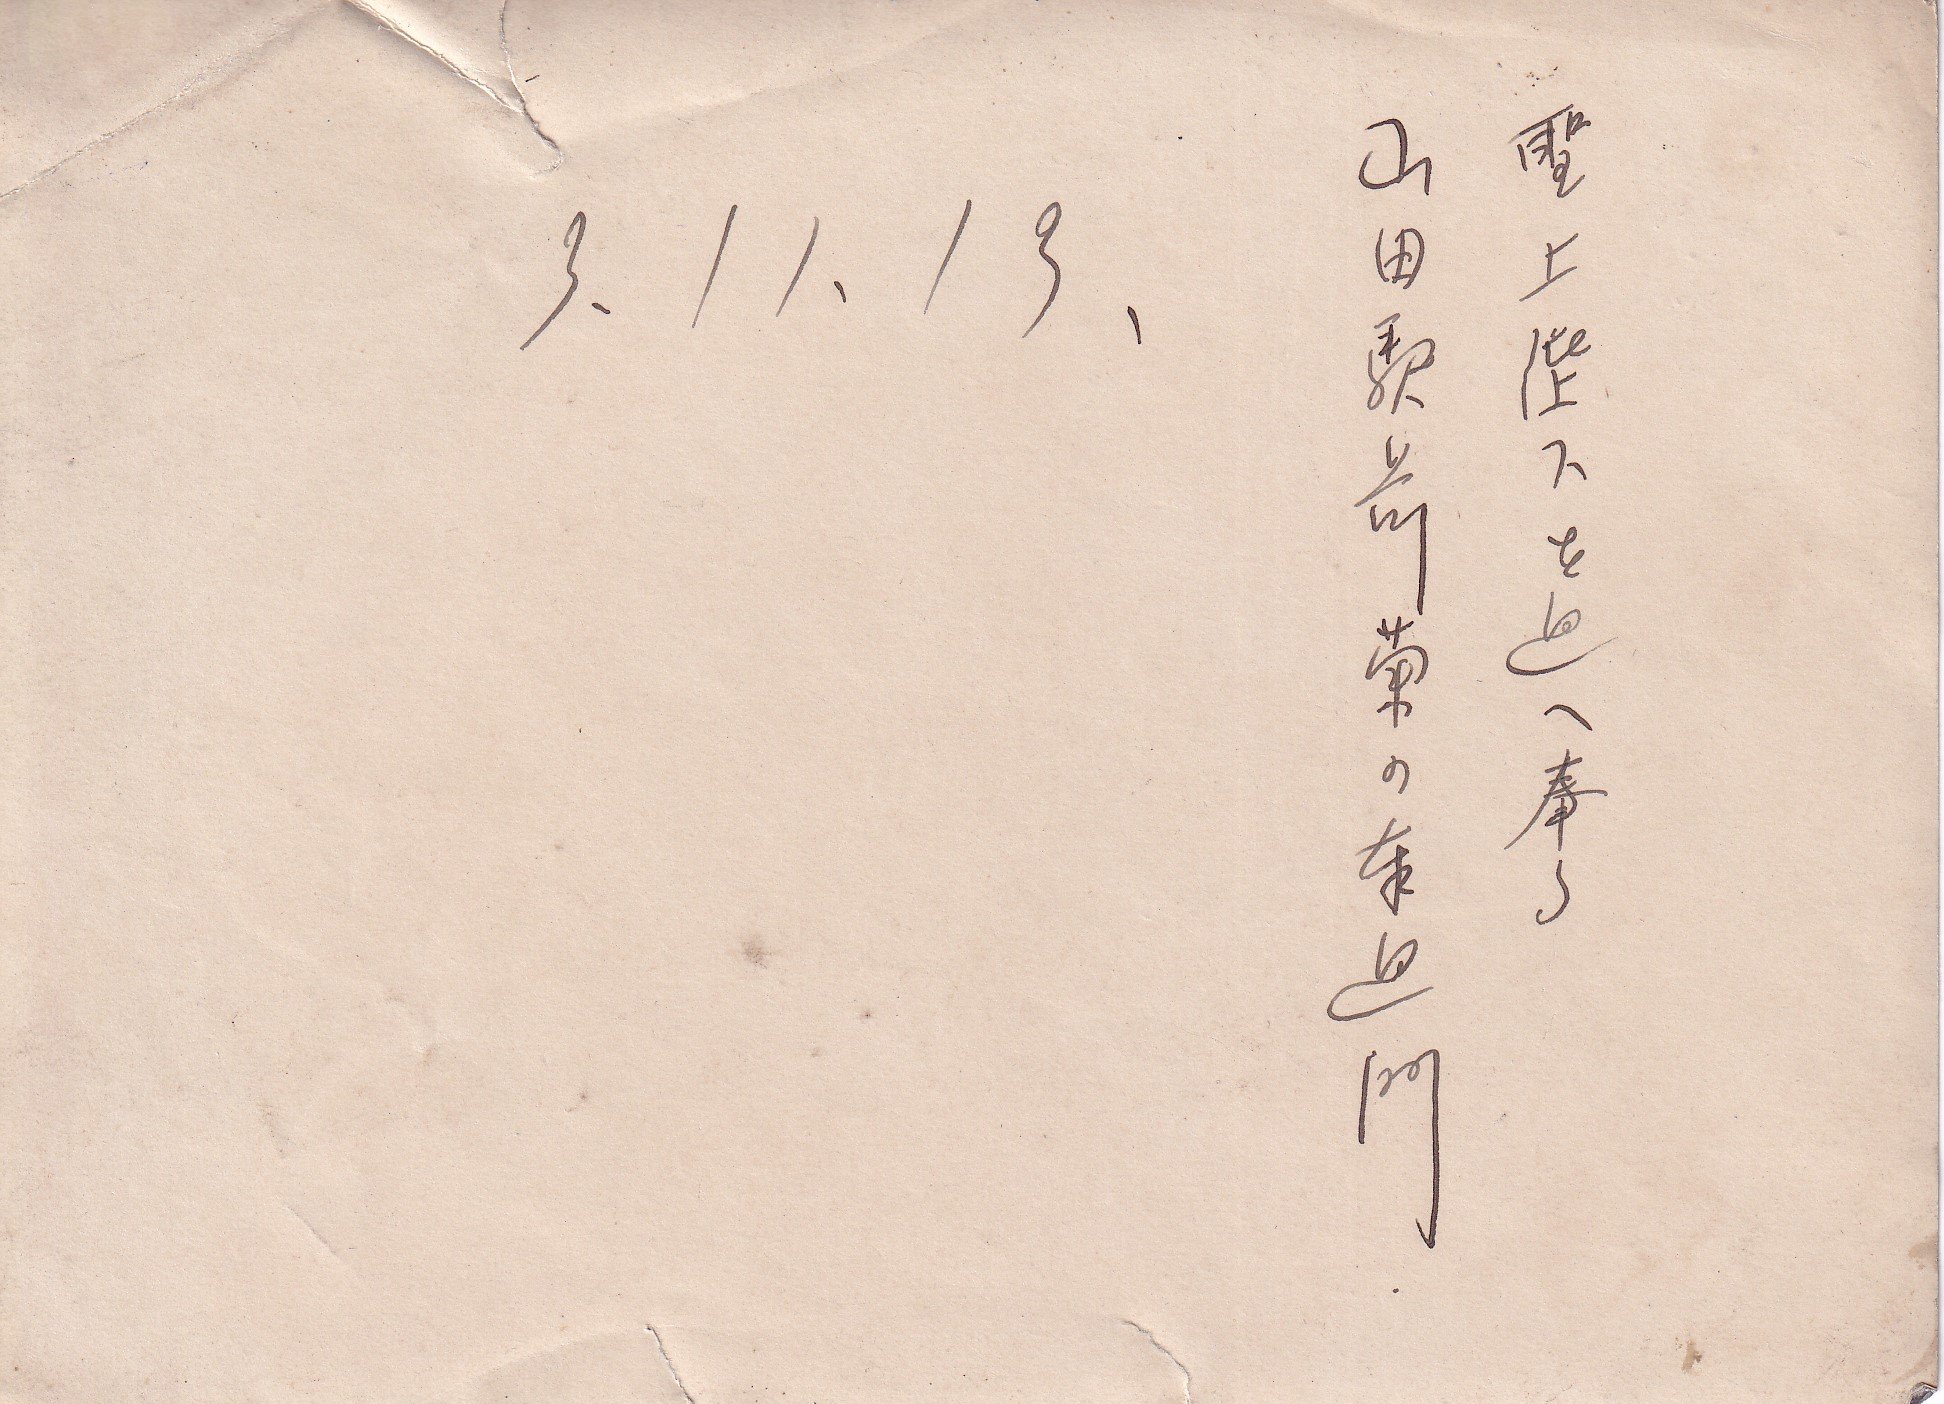 聖上陛下を迎へ奉る
山田駅前菊の奉迎門.
3、11、13、